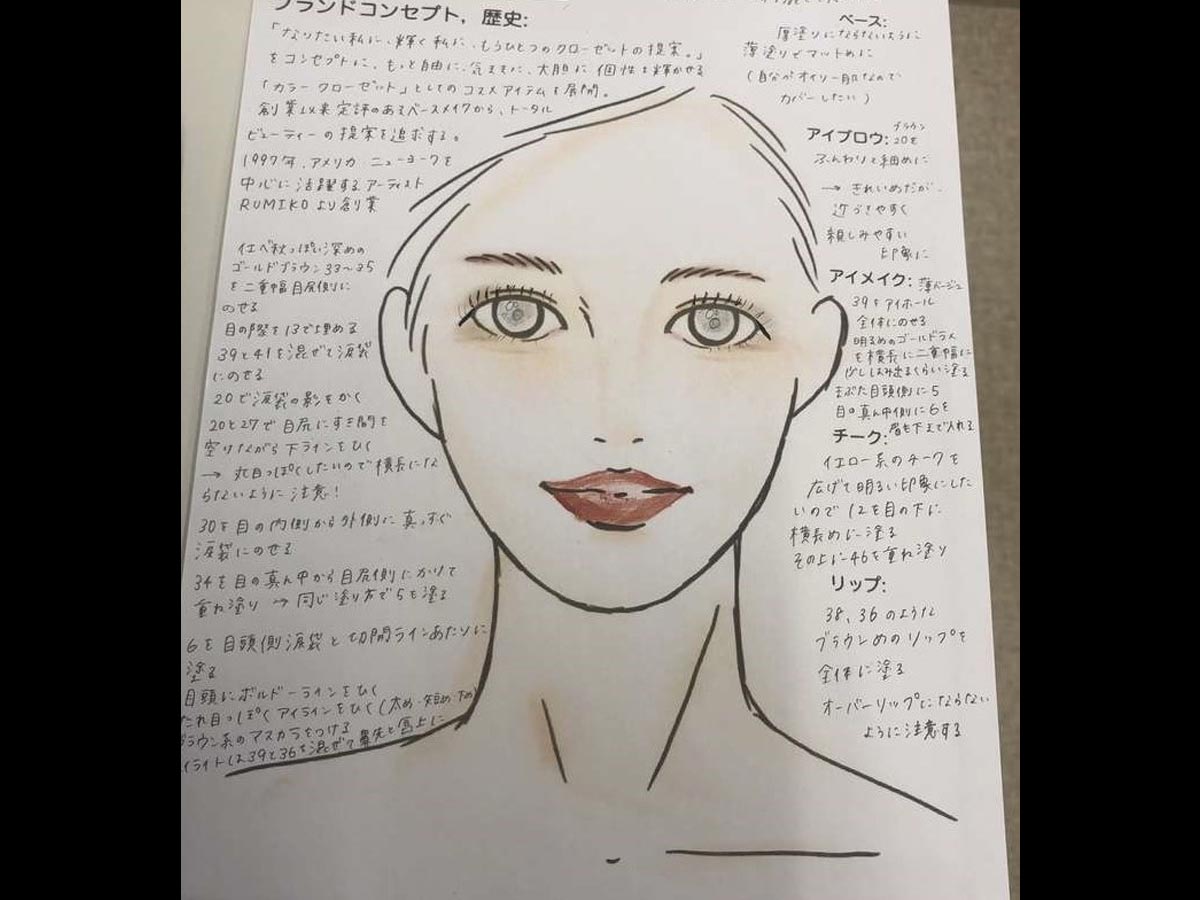 ブランドコンセプト，歴史:
「なりたい私に、輝く私に、もうひとつのクローゼットの提案。」
をコンセプトに、もっと自由に、気ままに、大胆に個性を輝かせる
「カラークローゼット」としてのコスメアイテムを展開。
創業以来定評のあるベースメイクから、トータル
ビューティーの提案を追求する。
1997年、アメリカ ニューヨークを
中心に活躍するアーティスト
RUMIKOより創業
仕上秋っぽい深めの
ゴールドブラウン33〜35
を二重幅目尻側に
のせる
目の際を13で埋める
39と41を混ぜて涙袋
にのせる
20で涙袋の影をかく
20と27で目尻にすき間を
空けながら下ラインをひく
→ 丸目っぽくしたいので横長にな
らないように注意！
30を目の内側から外側に真っすぐ
涙袋にのせる
34を目の真ん中から目尻側にかけて
重ね塗り → 同じ塗り方で5を塗る
6を目頭側涙袋と切開ラインあたりに
塗る
目頭にボルドーラインをひく
たれ目っぽくアイラインをひく(太め・短め・下め)
ブラウン系のマスカラをつける
イライトは39と36を混ぜて鼻先と唇上に
ベース:
厚塗りにならないように
薄塗りでマットめに
(自分がオイリー肌なので
カバーしたい)
アイブロウ: ブラウン
20を
ふんわりと細めに
→ きれいめだが、
近づきやすく
親しみやすい
印象に
アイメイク: 薄ベージュ
39をアイホール
全体にのせる
明るめのゴールドラメ
を横長に二重幅に
少しはみ出るくらい塗る
まぶた目頭側に5
目の真ん中側に6を
眉毛下まで入れる
チーク:
イエロー系のチークを
広げて明るい印象にした
いので12を目の下に
横長めに塗る
その上に46を重ね塗り
リップ:
38、36のような
ブラウンめのリップを
全体に塗る
オーバーリップにならない
ように注意する